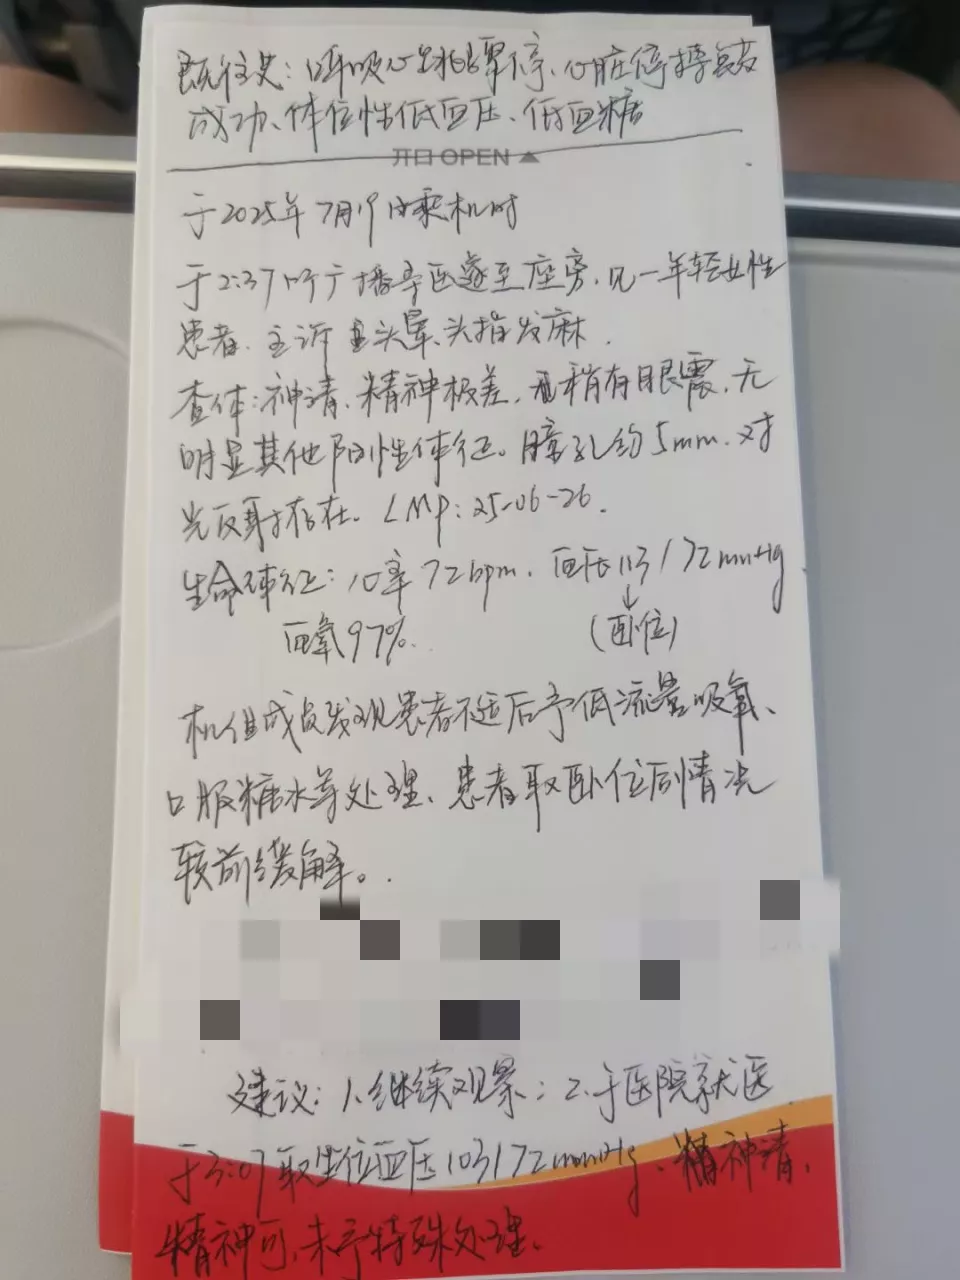 既往史：呼吸心跳骤停、心脏停搏复苏
成功、体位性低血压、低血糖
开口 OPEN
于2025年7月19日乘机时
于2:37听广播寻医遂至座旁，见一年轻女性
患者、主诉头晕、头指发麻.
查体：神清、精神极差，稍有眼震，无
明显其他阳性体征。瞳孔约5mm．对
光反射存在. LMP：25-06-26.
生命体征：心率72bpm．血压113/72mmHg
血氧97%. (卧位)
机组成员发现患者不适后予低流量吸氧、
口服糖水等处理、患者取卧位后情况
较前缓解。
建议：1.继续观察；2.于医院就医
于3:07取坐位血压103/72mmHg、精神清，
精神可，未予特殊处理.